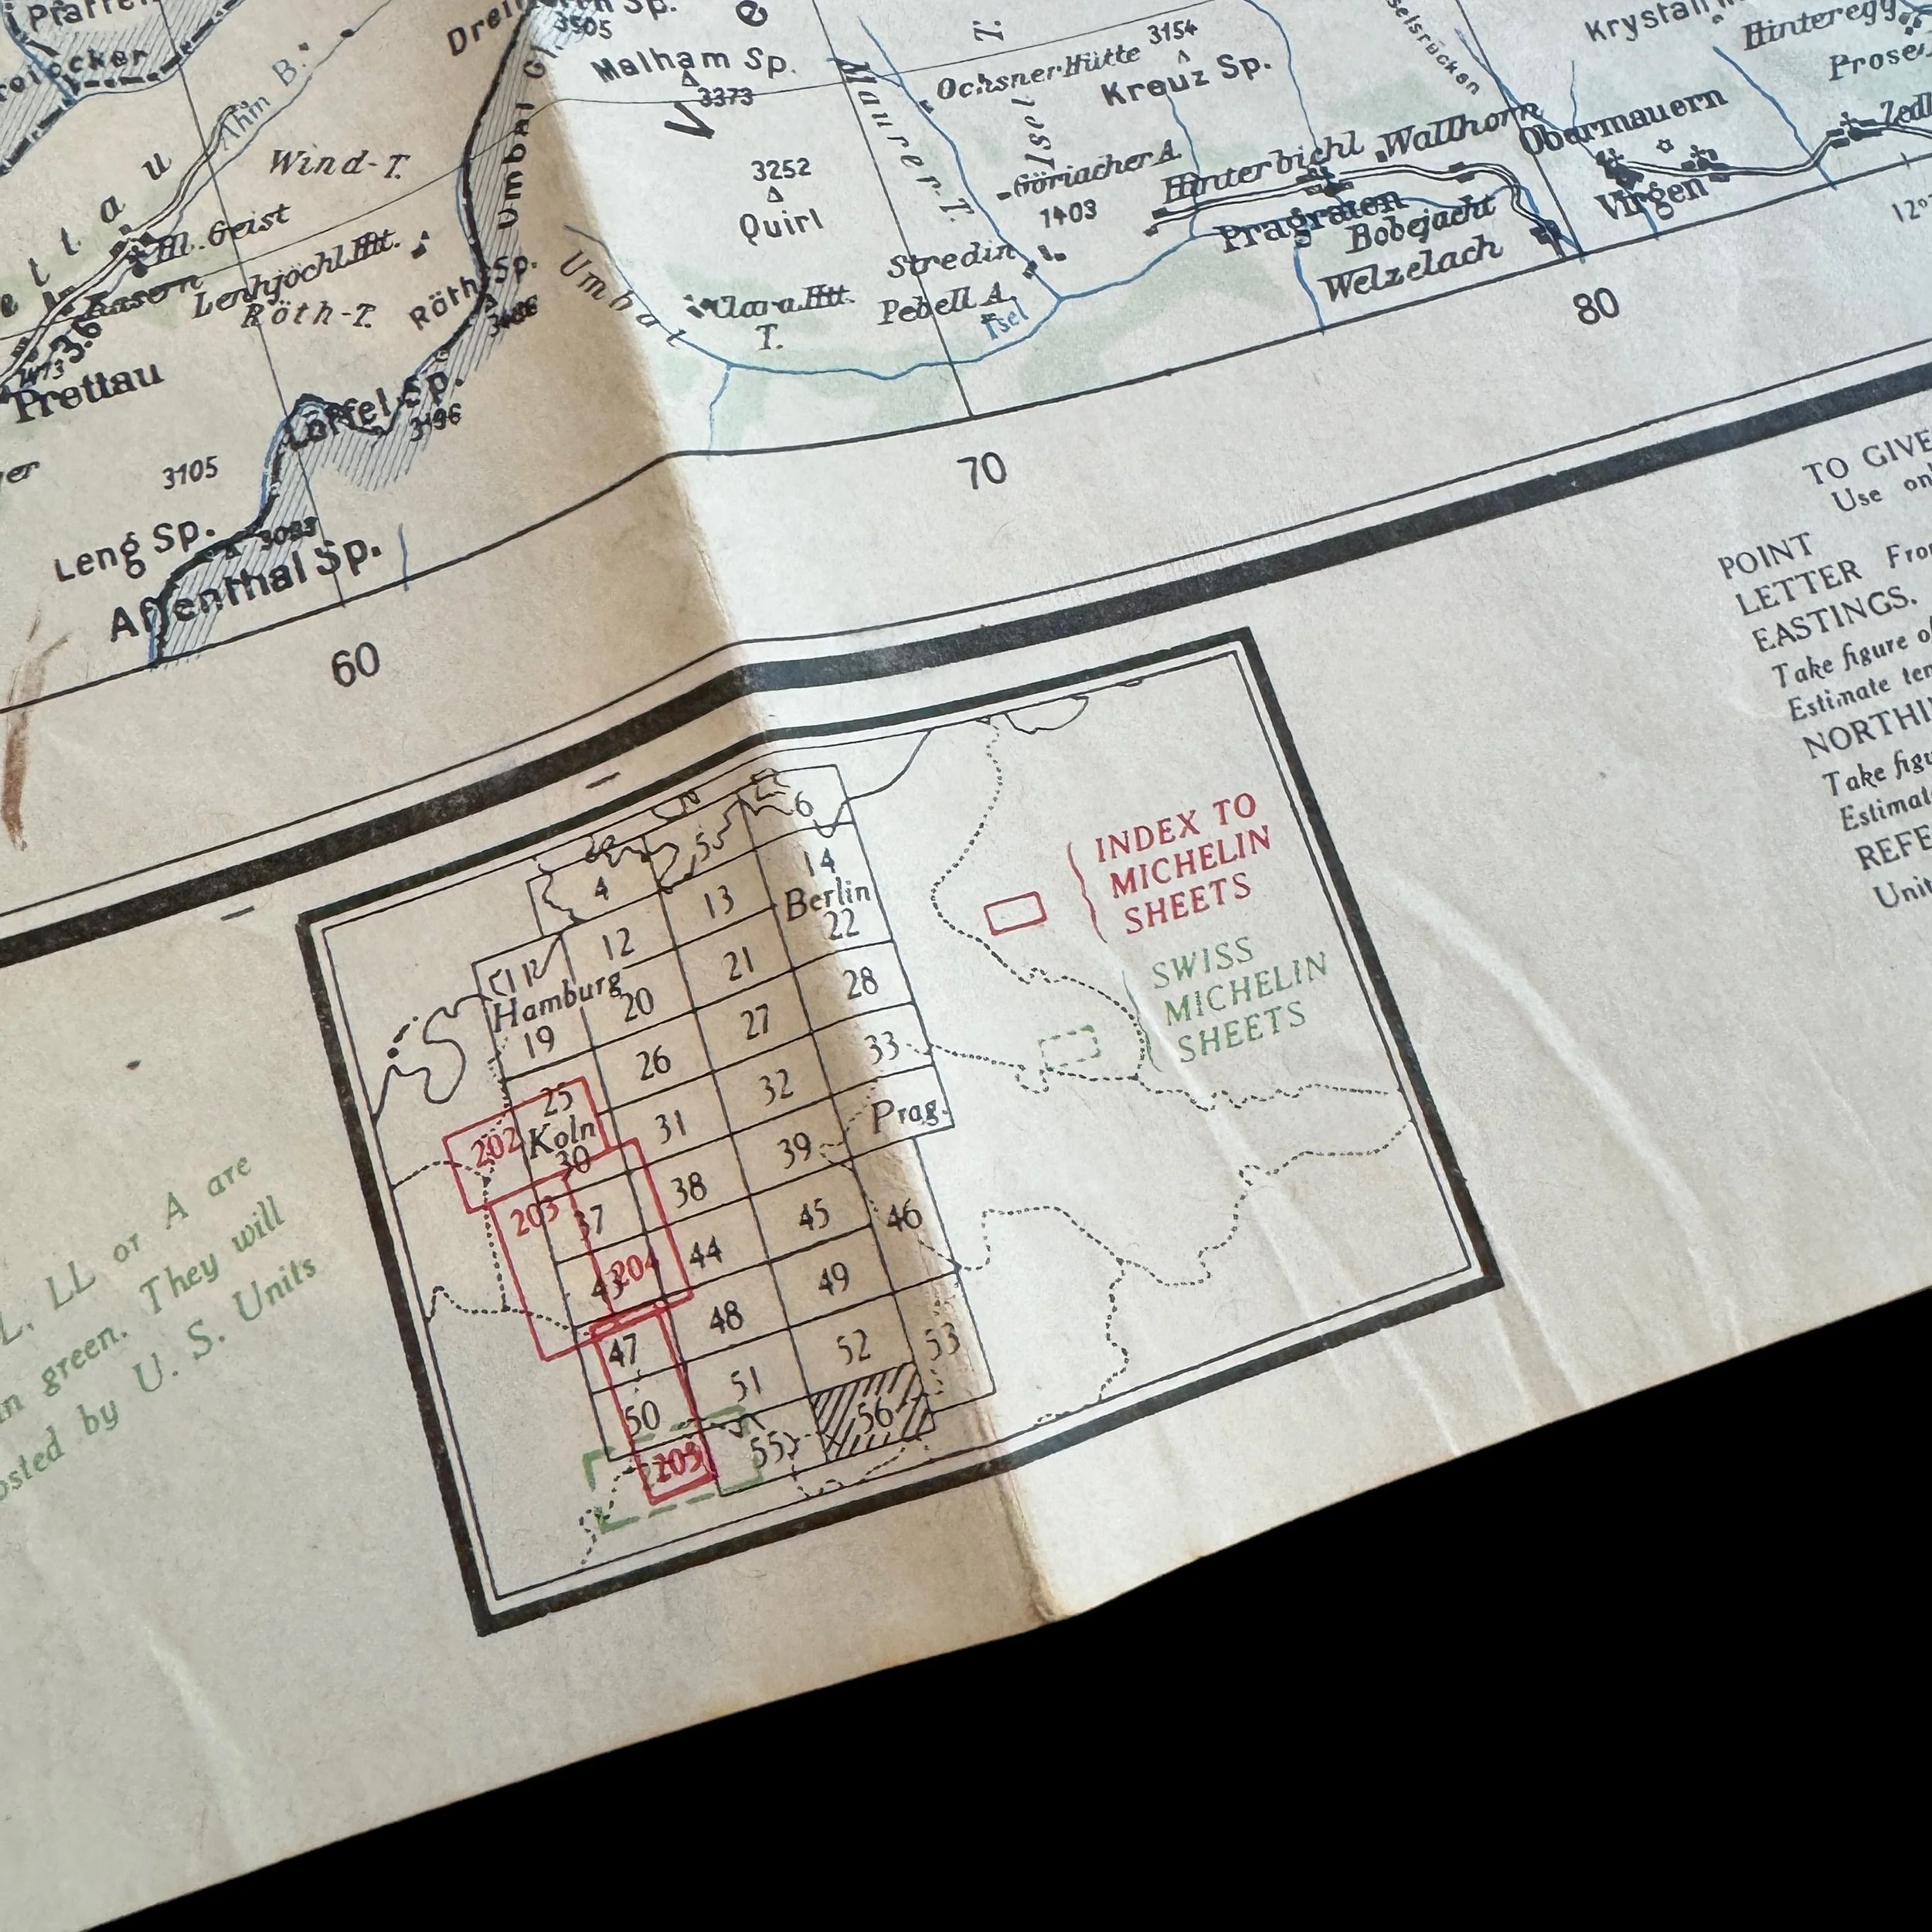 Malham Sp.
3373
3154
Ochsner Hütte
Kreuz Sp.
Hinteregg
Wind-T.
Umbal Gl.
3252
Quirl
Maurer-T.
Göriacher A.
1403
Hinterbichl
Wallhorn
Obermauern
Virgen
Pragraten
Bobejacht
Welzelach
Hl. Geist
Kasern
Lenkjöchl.Htt.
Röth-T.
Röth Sp.
Umbal
T.
Clara.Htt.
Stredin
Pebell A.
Isel
Prettau
Löffel Sp.
3196
3105
Leng Sp.
Affenthal Sp.
60
70
80
TO GIVE
Use on
POINT
LETTER From
EASTINGS.
Take figure of
Estimate ten
NORTHI
Take figu
Estimat
REFE
Unit
4
5
6
11
12
13
14
Berlin
Hamburg
19
20
21
22
25
26
27
28
Koln
30
31
32
33
Prag.
37
38
39
43
44
45
46
47
48
49
50
51
52
53
55
56
202
203
204
205
INDEX TO
MICHELIN
SHEETS
SWISS
MICHELIN
SHEETS
L, LL or A are
in green. They will
osted by U. S. Units